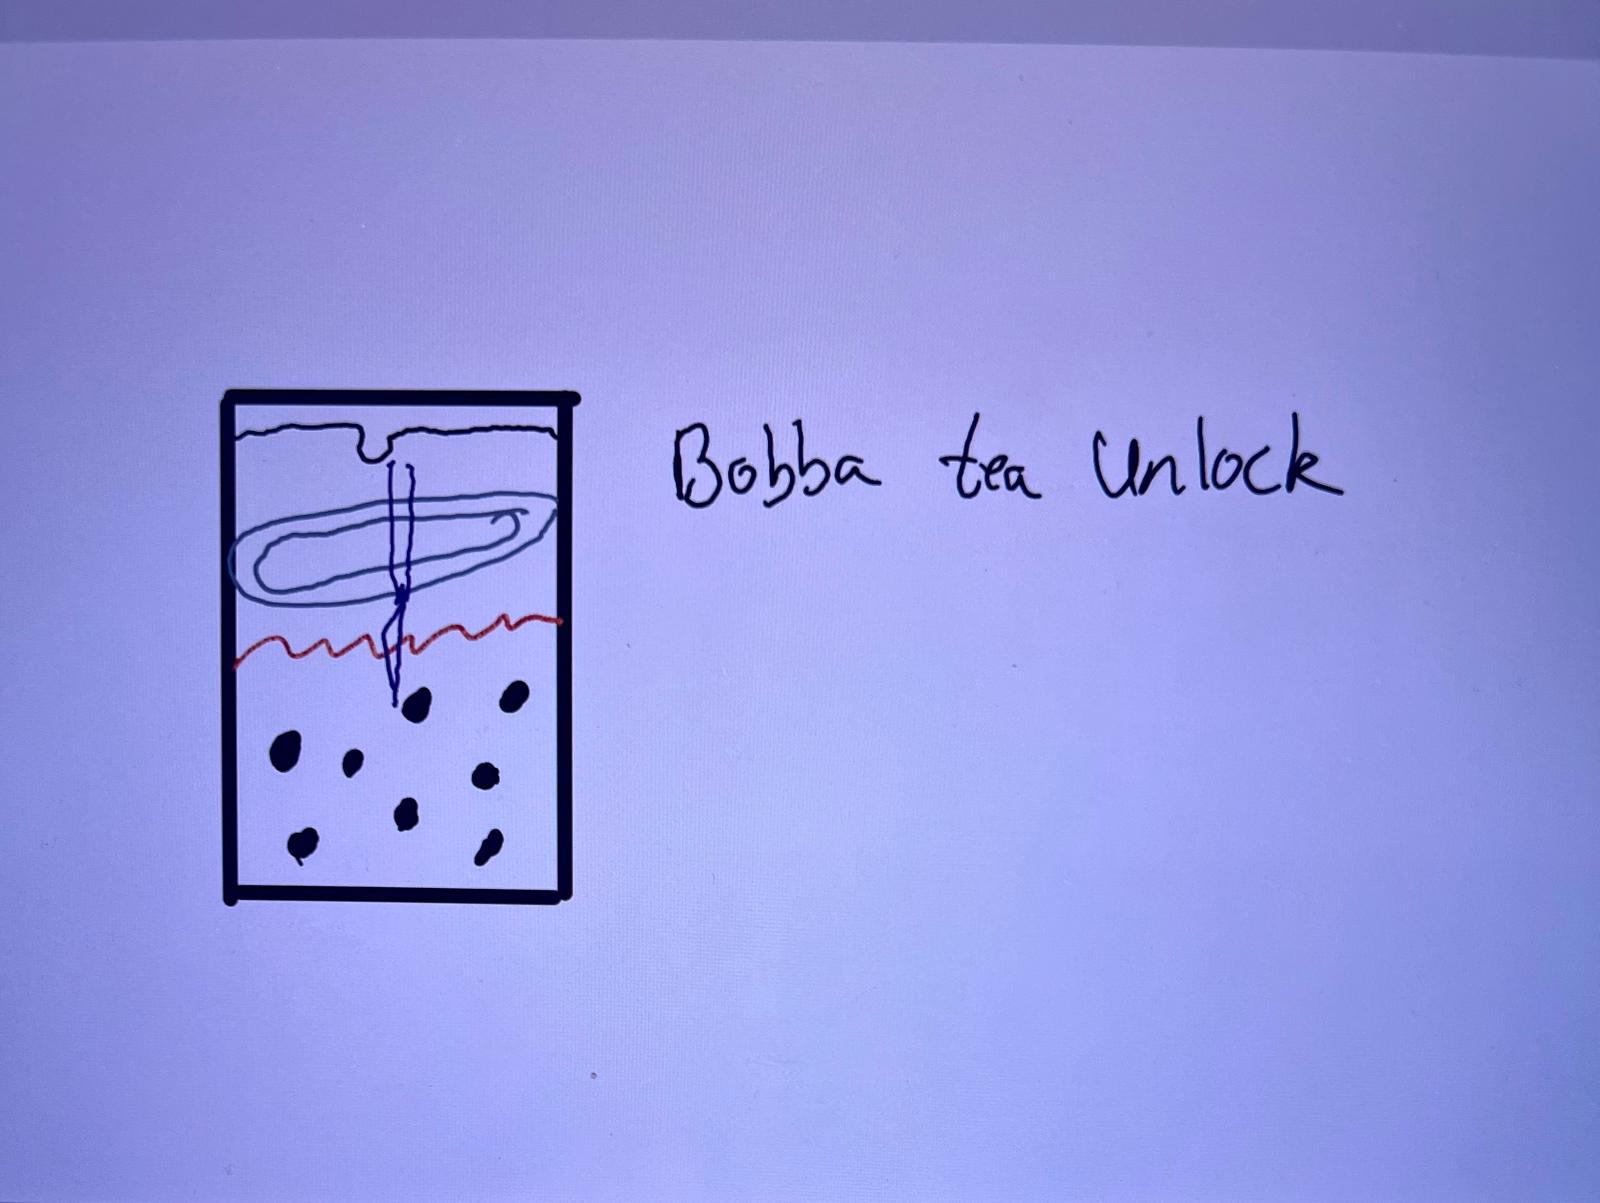 Bobba tea Unlock